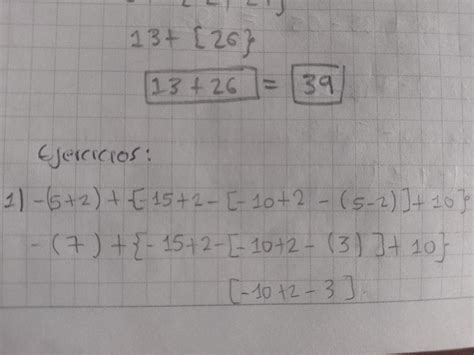 13+{26}
13+26 = 39
Ejercicios:
1) -(5+2) + {-15+2-[-10+2 - (5-2)]+10}
-(7)+{-15+2-[-10+2-(3)]+10}
[-10+2-3]